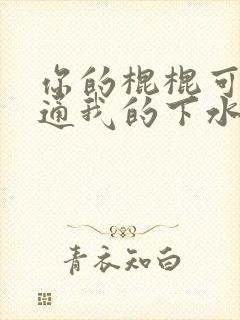 你的棍棍可
通我的下水
青衣知白